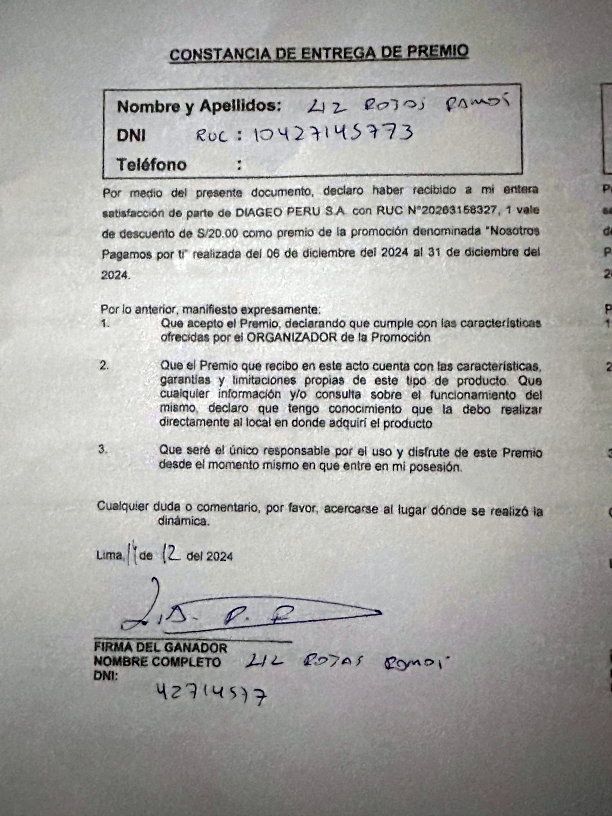 CONSTANCIA DE ENTREGA DE PREMIO
Nombre y Apellidos: LIZ ROJAS RAMOS
DNI RUC : 10427145773
Teléfono :
Por medio del presente documento, declaro haber recibido a mi entera
satisfacción de parte de DIAGEO PERU S.A. con RUC N°20263158327, 1 vale
de descuento de S/20.00 como premio de la promoción denominada "Nosotros
Pagamos por ti" realizada del 06 de diciembre del 2024 al 31 de diciembre del
2024.
Por lo anterior, manifiesto expresamente:
1. Que acepto el Premio, declarando que cumple con las características
ofrecidas por el ORGANIZADOR de la Promoción
2. Que el Premio que recibo en este acto cuenta con las características,
garantías y limitaciones propias de este tipo de producto. Que
cualquier información y/o consulta sobre el funcionamiento del
mismo, declaro que tengo conocimiento que la debo realizar
directamente al local en donde adquirí el producto
3. Que seré el único responsable por el uso y disfrute de este Premio
desde el momento mismo en que entre en mi posesión.
Cualquier duda o comentario, por favor, acercarse al lugar dónde se realizó la
dinámica.
Lima, 14 de 12 del 2024
FIRMA DEL GANADOR
NOMBRE COMPLETO LIZ ROJAS RAMOS
DNI:
42714577